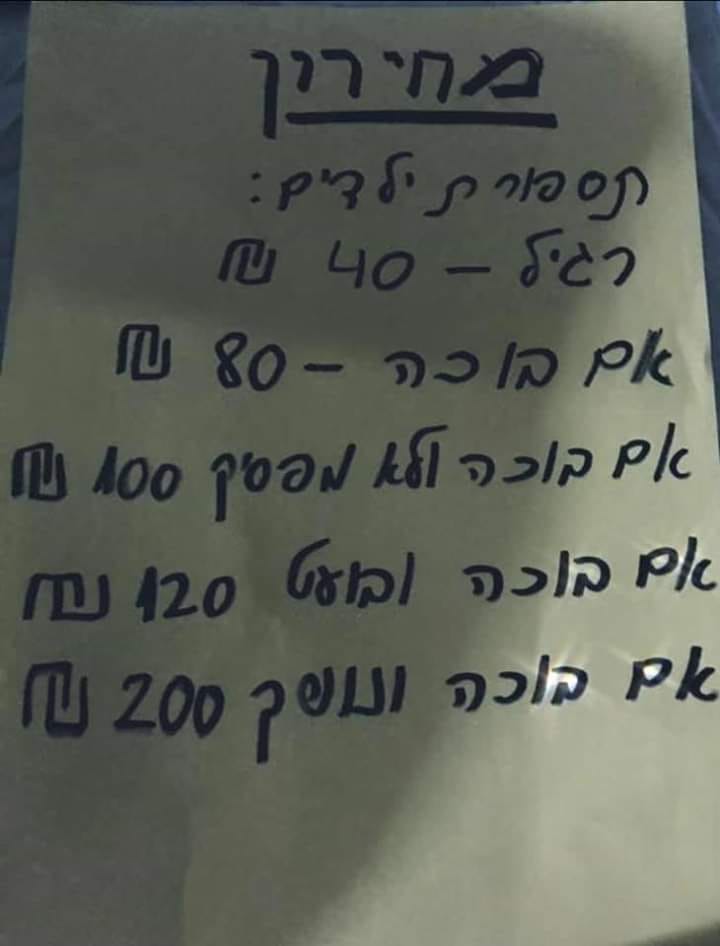 מחירון
תספורת ילדים:
רגיל – 40 ₪
אם בוכה – 80 ₪
אם בוכה ולא מפסיק 100 ₪
אם בוכה ובועט 120 ₪
אם בוכה ונושך 200 ₪